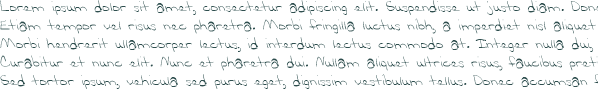 Lorem ipsum dolor sit amet, consectetur adipiscing elit. Suspendisse ut justo diam. Donec
Etiam tempor vel risus nec pharetra. Morbi fringilla luctus nibh, a imperdiet nisl aliquet
Morbi hendrerit ullamcorper lectus, id interdum lectus commodo at. Integer nulla dui,
Curabitur et nunc elit. Nunc et pharetra dui. Nullam aliquet ultrices risus, faucibus pret
Sed tortor ipsum, vehicula sed purus eget, dignissim vestibulum tellus. Donec accumsan f